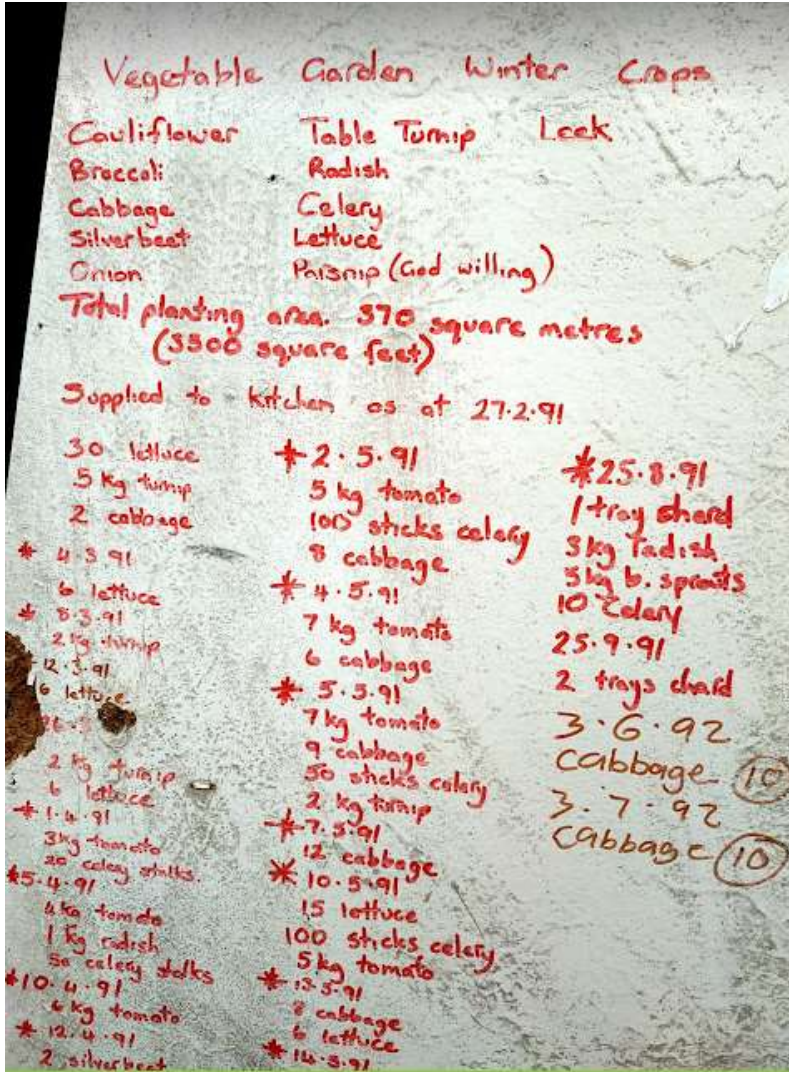 Vegetable Garden Winter Crops
Cauliflower Table Turnip Leek
Broccoli Radish
Cabbage Celery
Silverbeet Lettuce
Onion Parsnip (God willing)
Total planting area. 370 square metres
(3300 square feet)
Supplied to kitchen as at 27.2.91
30 lettuce
5 kg turnip
2 cabbage
* 4.3.91
6 lettuce
* 8.3.91
2 kg turnip
12.3.91
6 lettuce
26.3
2 kg turnip
6 lettuce
* 1.4.91
3 kg tomato
20 celery stalks.
* 5.4.91
4 kg tomato
1 kg radish
50 celery stalks
* 10.4.91
6 kg tomato
* 12.4.91
2 silverbeet
* 2.5.91
5 kg tomato
100 sticks celery
8 cabbage
* 4.5.91
7 kg tomato
6 cabbage
* 5.5.91
7 kg tomato
9 cabbage
50 sticks celery
2 kg turnip
* 7.5.91
12 cabbage
* 10.5.91
15 lettuce
100 sticks celery
5 kg tomato
* 13.5.91
8 cabbage
6 lettuce
* 14.5.91
* 25.8.91
1 tray chard
3 kg radish
5 kg b. sprouts
10 celery
25.9.91
2 trays chard
3.6.92
cabbage 10
3.7.92
cabbage 10